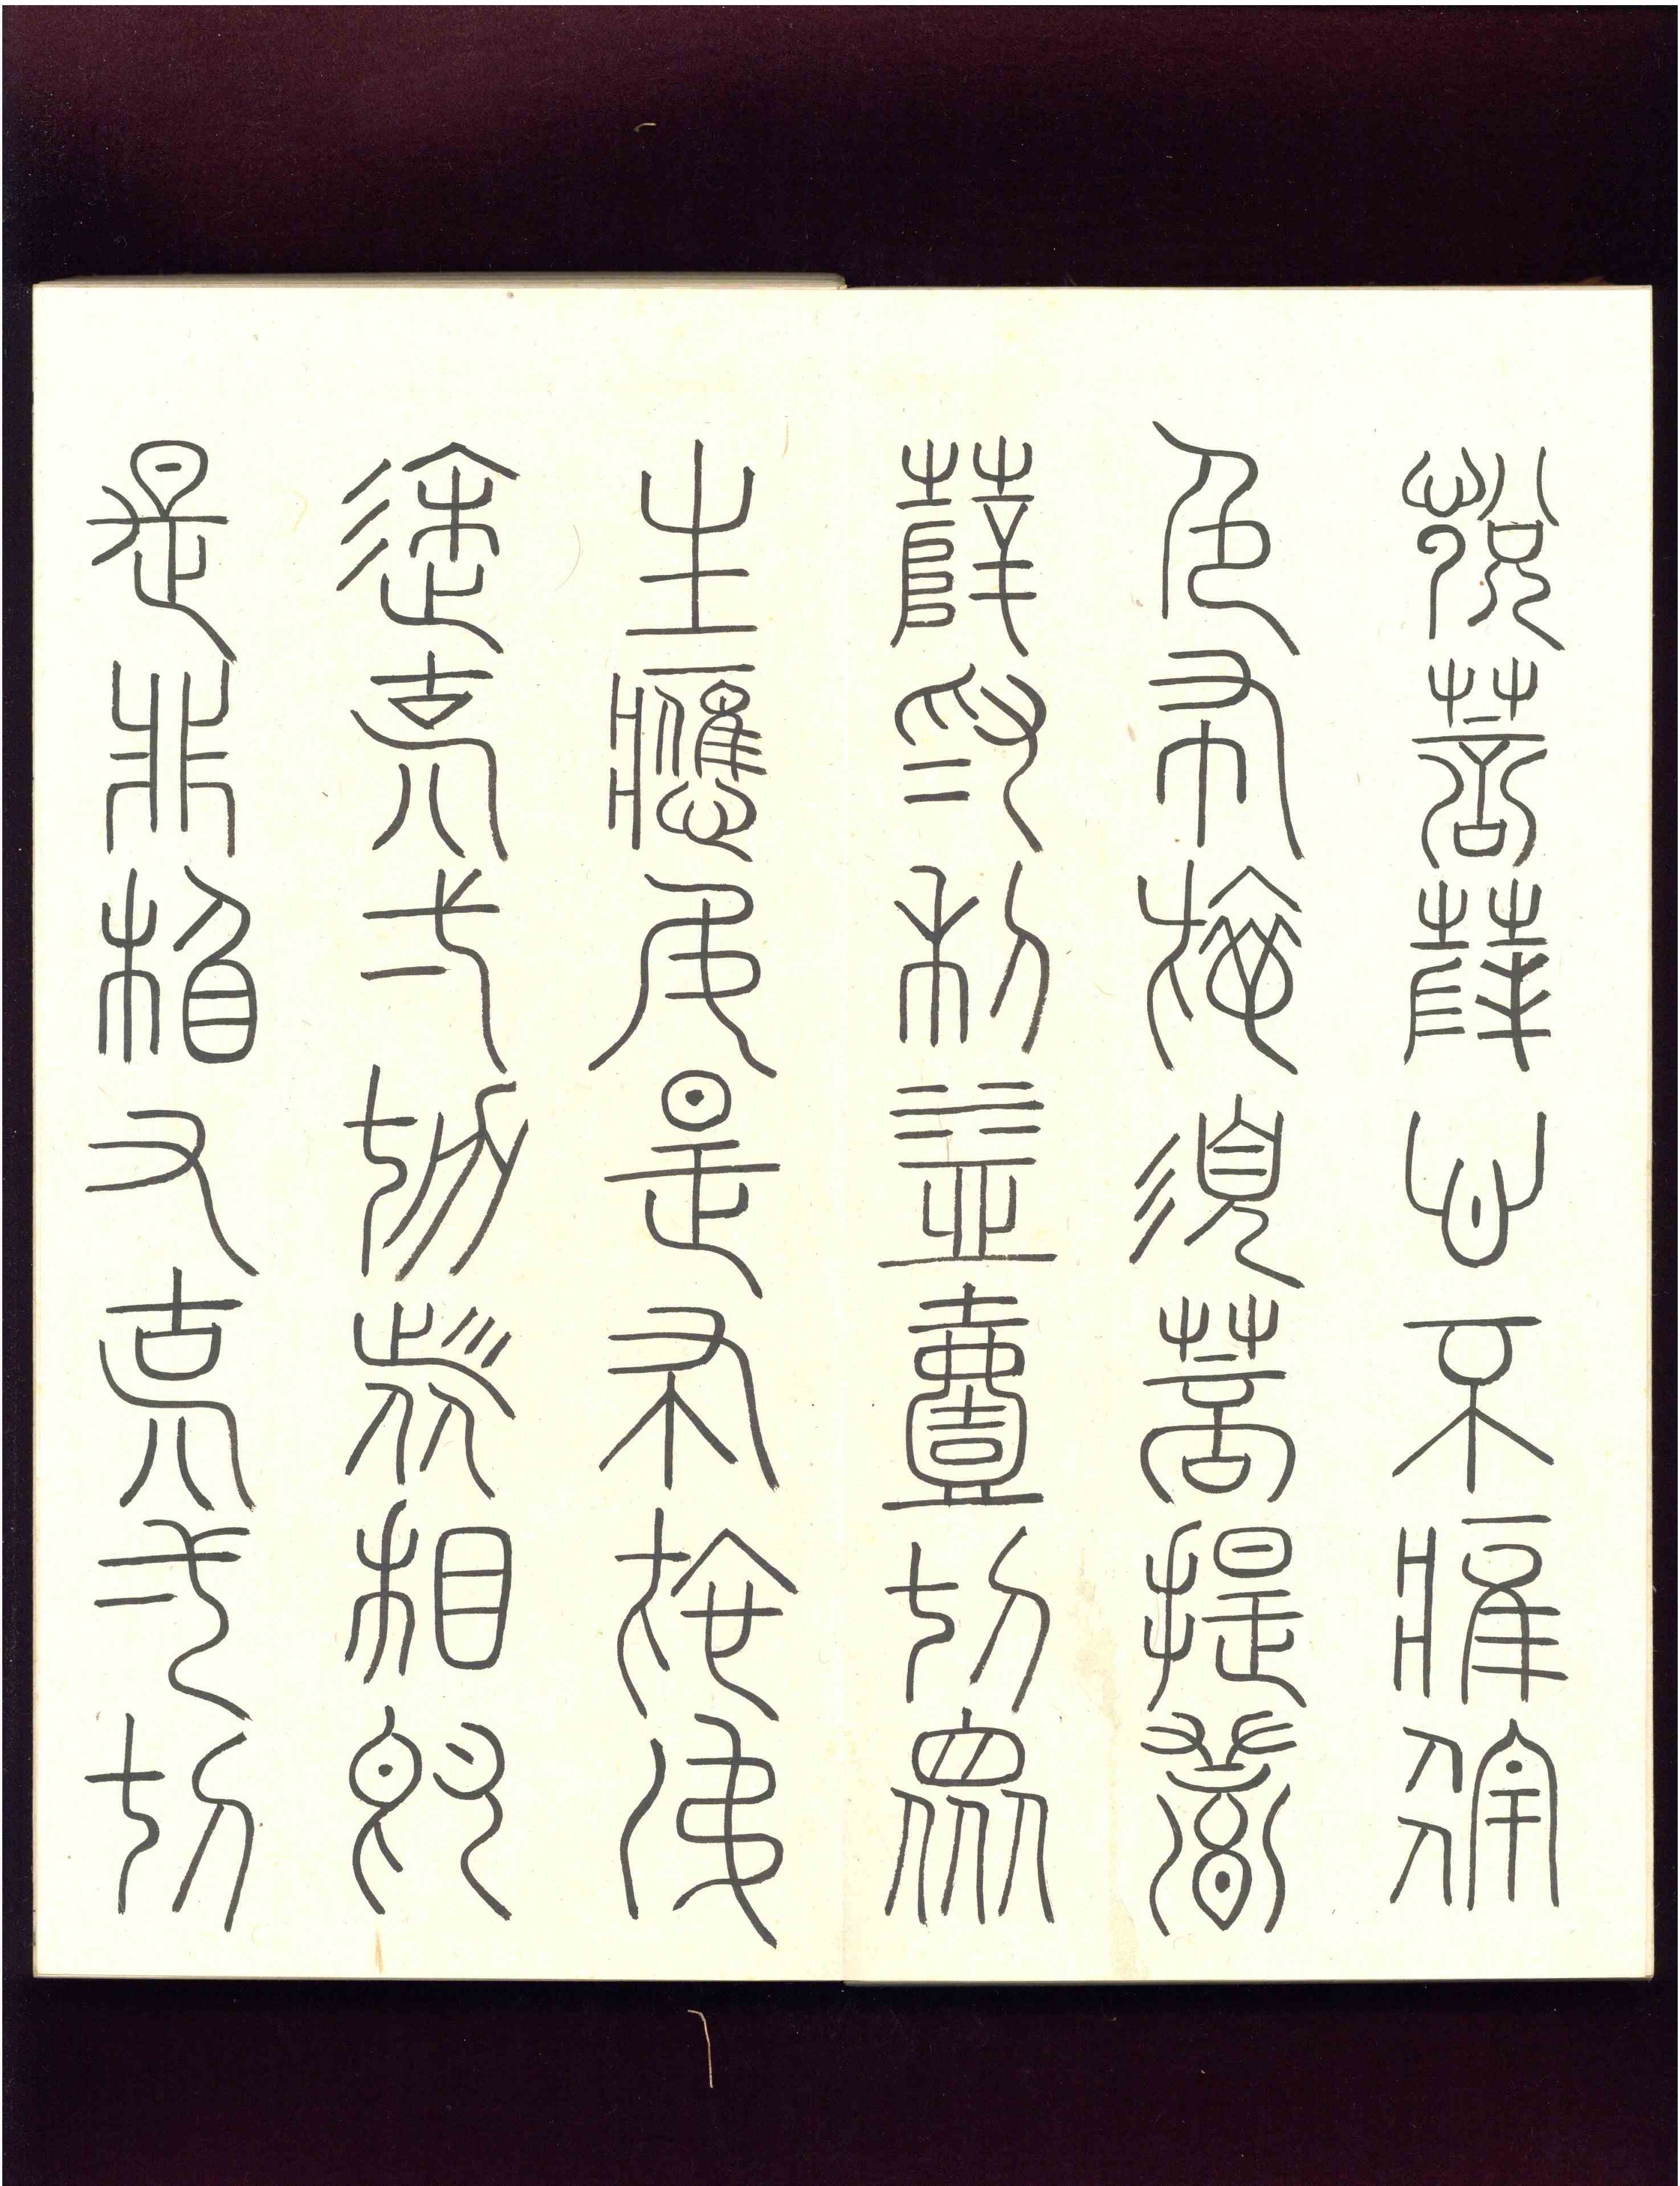 說菩薩心不應住
色布施須菩提菩
薩為利益壹切眾
生應如是布施如
來說一切諸相即
是非相又說一切